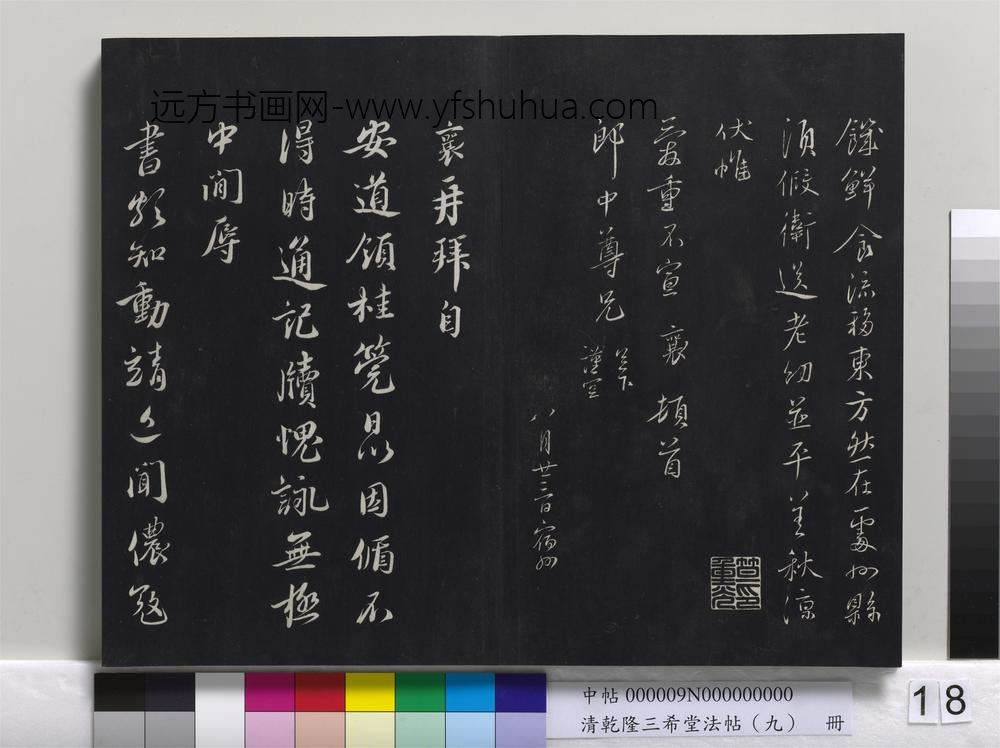 远方书画网-www.yfshuhua.com
饑鮮食流移東方然在處州縣
須假衛送老幼並平善秋涼
伏惟
愛重不宣 襄 頓首
郎中尊兄 足下
謹空
八月廿三日宿州
襄再拜自
安道領桂筦曷以因循不
得時通記牘愧詠無極
中間辱
書頗知動靖近聞儂寇
中帖 000009N000000000
清乾隆三希堂法帖（九） 冊
18